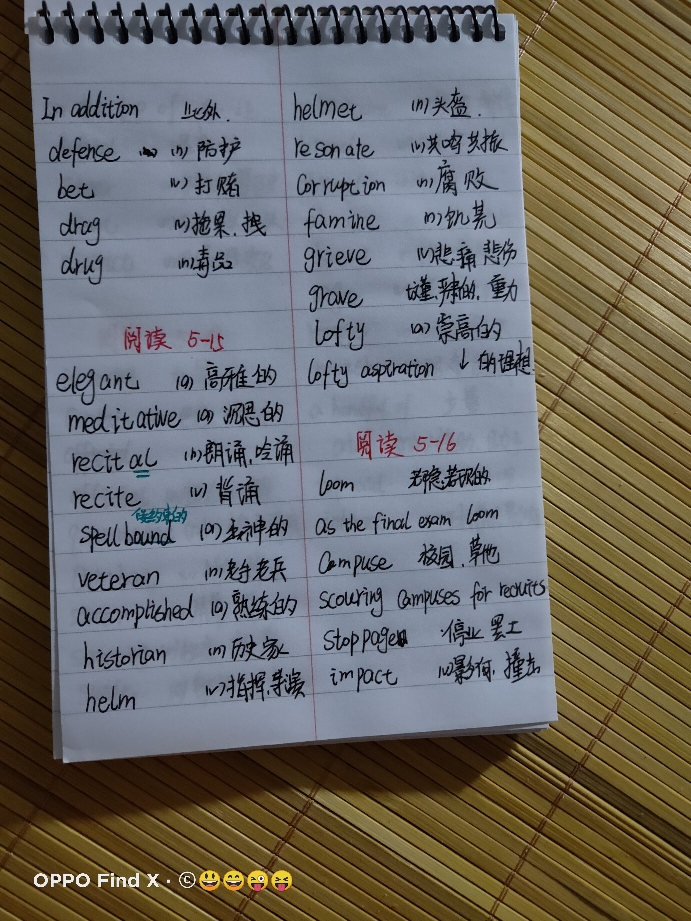 In addition 此外.
defense (n) 防护
bet (v) 打赌
drag (v) 拖累. 拽
drug (n) 毒品
阅读 5-15
elegant (a) 高雅的
meditative (a) 沉思的
recital (n) 朗诵, 吟诵
recite (v) 背诵
spellbound (a) 出神的
veteran (n) 老手 老兵
accomplished (a) 熟练的
historian (n) 历史家
helm (v) 指挥, 导演
helmet (n) 头盔.
resonate (v) 共鸣 共振
Corruption (n) 腐败
famine (n) 饥荒
grieve (v) 悲痛 悲伤
grave 严肃的, 重力
lofty (a) 崇高的
lofty aspiration ↓ 的理想.
阅读 5-16
loom 若隐若现的
as the final exam loom
Campuse 校园, 草地
scouring Campuses for recruits
stoppage 停业 罢工
impact (v) 影响, 撞击
OPPO Find X · ©😃😄😜😝